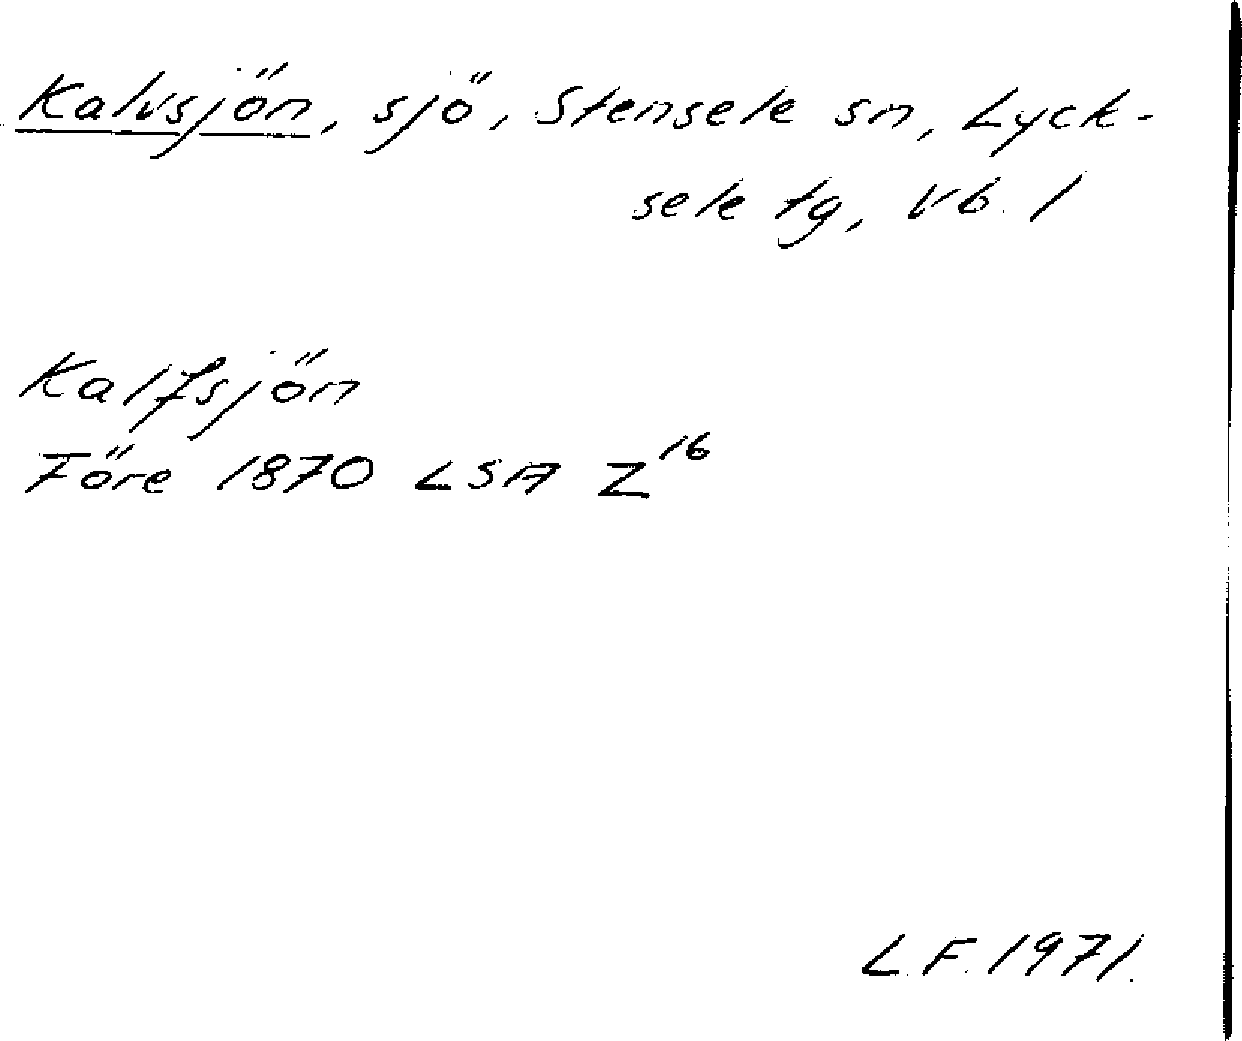 Kalvsjön, sjö, Stensele sn, Lyck-
sele tg, Vb. l
Kalfsjön
Före 1870 LSA Z¹⁶
L.F. 1971.